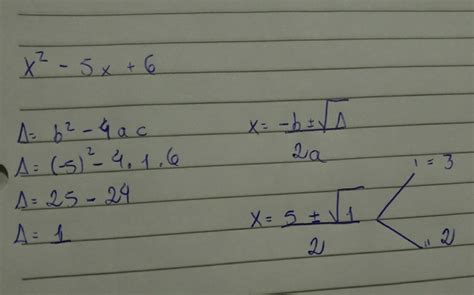 x² - 5x + 6
Δ = b² - 4ac
Δ = (-5)² - 4.1.6
Δ = 25 - 24
Δ = 1
x = -b ± √Δ
2a
x = 5 ± √1
2
' = 3
'' 2